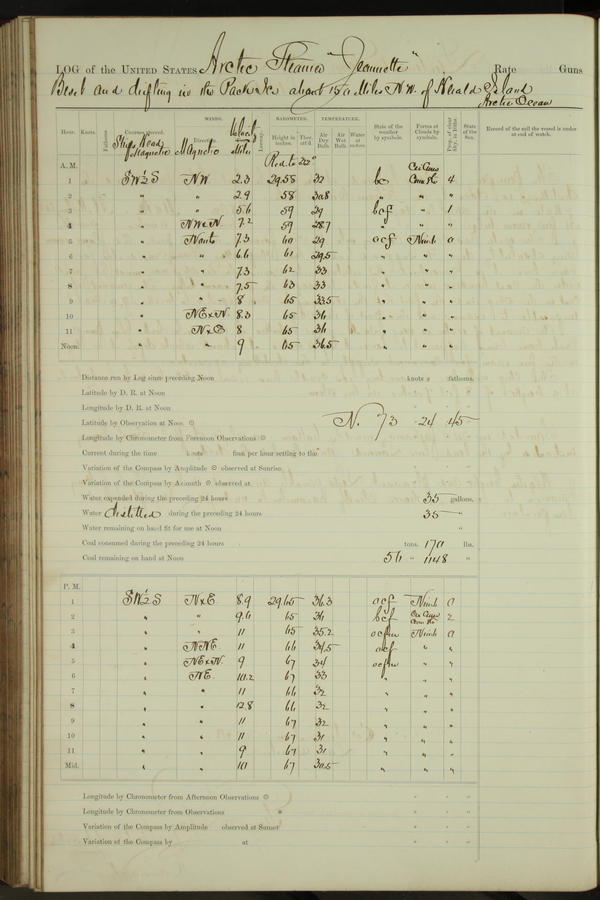 LOG of the UNITED STATES Arctic Steamer "Jeannette" Rate Guns
Beset and drifting in the Pack Ice about 150 Miles N.W. of Herald Island
Arctic Ocean
Hour. Knots. Fathoms. Courses steered. WINDS. Direction. Velocity Miles Leeway. BAROMETER. Height in inches. Ther. att'd. TEMPERATURE. Air Dry Bulb. Air Wet Bulb. Water at State of the weather by symbols. Forms of Clouds by symbols. State of the Sea. Record of the sail the vessel is under at end of watch.
Ship's Head Magnetic Magnetic
A.M. Red. to 32° Cir Cum
1 SW½S NW 2.3 29.58 32 bc Cum Str 4
2 " " 2.9 58 30.8 " " "
3 " " 5.6 59 29 bcf " 1
4 " NWxN 7.2 59 28.7 " " "
5 " North 7.3 60 29 ocf Nimb 0
6 " " 6.6 61 29.5 " " "
7 " " 7.3 62 33 " " "
8 " " 7.5 63 33 " " "
9 " " 8 65 33.5 " " "
10 " NExN 8.3 65 36 " " "
11 " NxE 8 65 36 " " "
Noon. " " 9 65 36.5 " " "
Distance run by Log since preceding Noon knots & fathoms.
Latitude by D. R. at Noon
Longitude by D. R. at Noon
Latitude by Observation at Noon ⊙ N. 73 24 45
Longitude by Chronometer from Forenoon Observations ⊙
Current during the time knots fms per hour setting to the
Variation of the Compass by Amplitude ⊙ observed at Sunrise
Variation of the Compass by Azimuth ⊙ observed at
Water expended during the preceding 24 hours 35 gallons.
Water distilled during the preceding 24 hours 35 "
Water remaining on hand fit for use at Noon "
Coal consumed during the preceding 24 hours tons. 170 lbs.
Coal remaining on hand at Noon 56 " 1148 "
P.M.
1 SW½S NxE 8.9 29.65 36.3 ocf Nimb 0
2 " " 9.6 65 36 bcf Cir Cum Cum Str 2
3 " " 11 65 35.2 ocfm Nimb 0
4 " NNE 11 66 34.5 ocf " "
5 " NExN 9 67 34 ocfm " "
6 " NE 10.2 67 33 " " "
7 " " 11 66 32 " " "
8 " " 12.8 66 32 " " "
9 " " 11 67 32 " " "
10 " " 11 67 31 " " "
11 " " 9 67 31 " " "
Mid. " " 10 67 30.5 " " "
Longitude by Chronometer from Afternoon Observations ⊙
Longitude by Chronometer from Observations *
Variation of the Compass by Amplitude observed at Sunset
Variation of the Compass by at